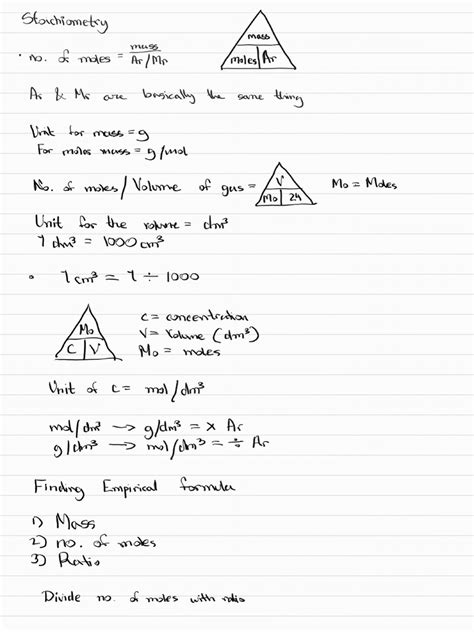 Stoichiometry
mass
moles Ar
• no. of moles = mass / Ar/Mr
Ar & Mr are basically the same thing
Unit for mass = g
For moles mass = g/mol
No. of moles / Volume of gas = V Mo 24 Mo = Moles
Unit for the volume = dm³
1 dm³ = 1000 cm³
• 1 cm³ = 1 ÷ 1000
Mo
C V
C = concentration
V = Volume (dm³)
Mo = moles
Unit of C = mol/dm³
mol/dm³ → g/dm³ = × Ar
g/dm³ → mol/dm³ = ÷ Ar
Finding Empirical formula
1) Mass
2) no. of moles
3) Ratio
Divide no. of moles with ratio